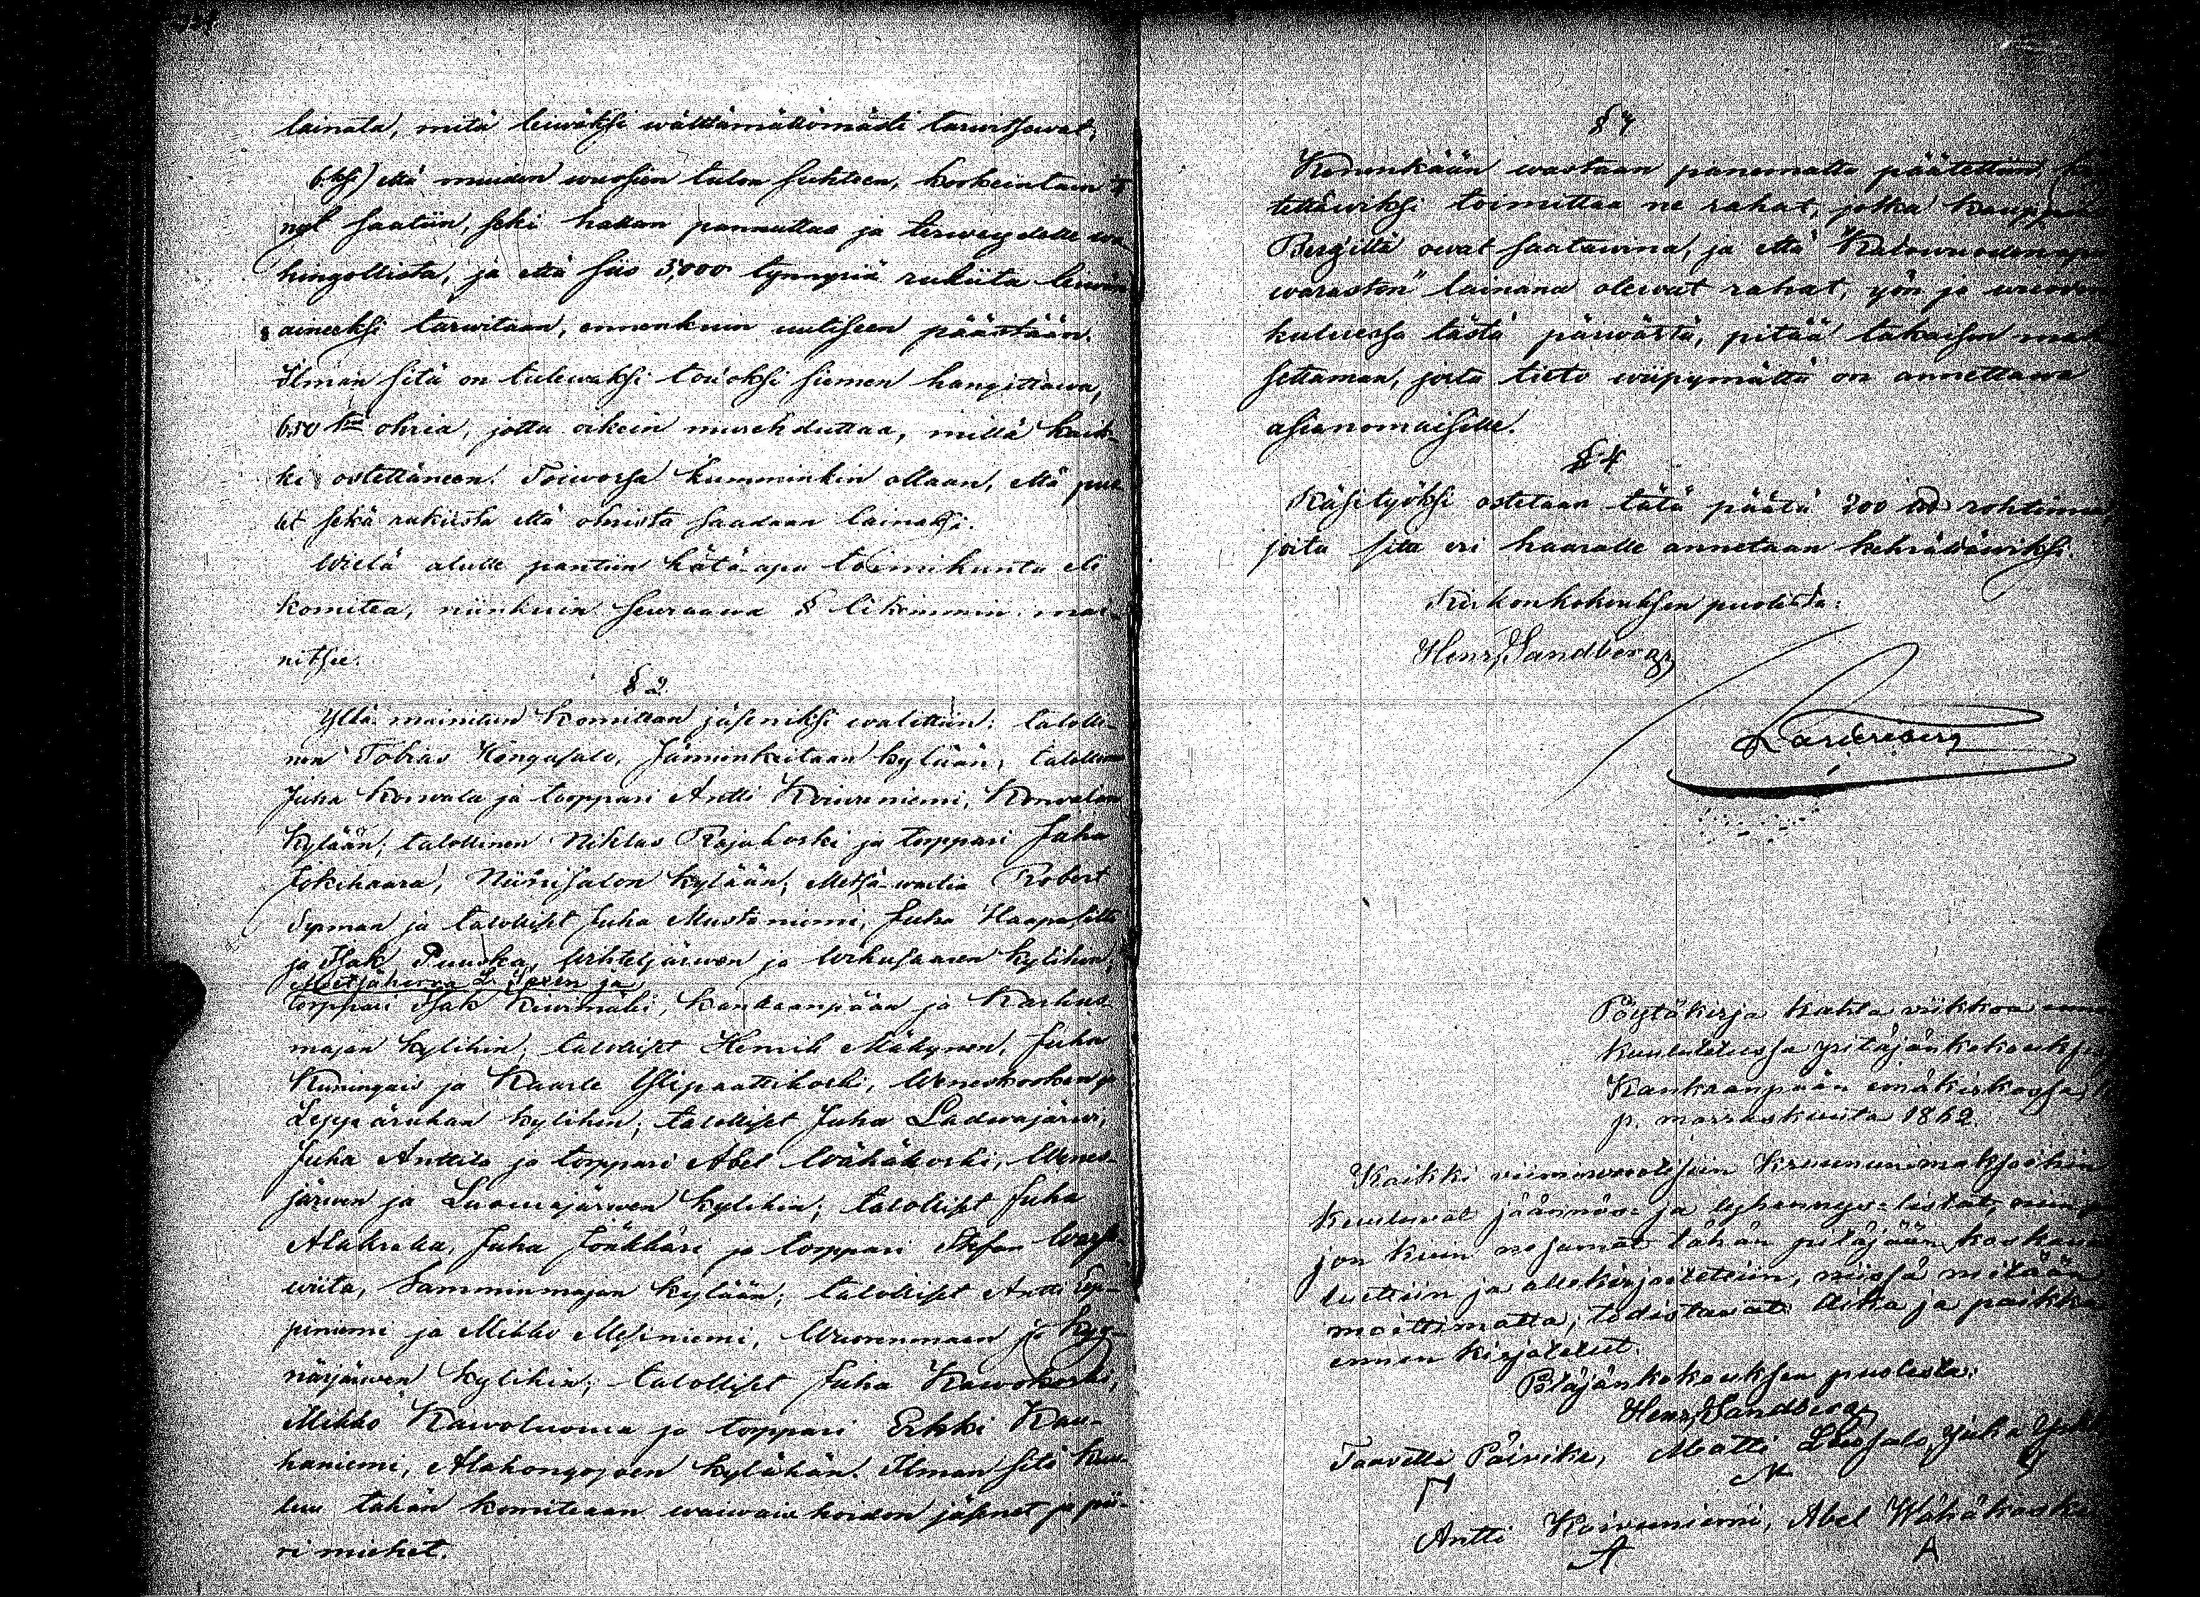 lainata, mitä leiwäksi wälttämättömästi tarwitsewat,
6:ksi) että muiden wuosien tulon suhteen, korkeintain
nyt saatiin, sekä hallan pannuttaa ja terweydelle wa-
hingollista, ja että siis 3,000 tynnyriä rukiita leiwän
aineeksi tarwitaan, ennenkuin uutiseen päästään.
Ilman sitä on tulewaksi touoksi siemen hangittawa,
650 tm ohria, jotta oikein murehduttaa, millä kaik-
ki ostettäneen. Toiwossa kumminkin ollaan, että puo-
let sekä rukiista että ohrista saadaan lainaksi.
Wielä alulle pantiin hätä-apu toimikunta eli
komitea, niinkuin seuraawa § likemmin mai-
nitsee.
§ 2
Yllä mainitun komitean jäseniksi walittiin: talolli-
nen Tobias Hongosalo, Jäminkeitaan kylään; talollinen
Juha Korwala ja torppari Antti Koiwuniemi, Korwalan
kylään; talollinen Niklas Rajakoski ja torppari Juha
Jokihaara, Niinisalon kylään; Metsä-wartia Robert
Syman ja talolliset Juha Mustaniemi, Juha Haapasilta
ja Isak Puuska, Wihteljärwen ja Werhusaaren kylihin;
Metsäherra L. Spåren ja
torppari Isak Kiwimäki, Kankaanpään ja Karhus-
majan kylihin; talolliset Henrik Mäkynen, Juha
Kuningais ja Kaarle Ylipaattikoski, Weneskosken ja
Leppäruhan kylihin; talolliset Juha Ladwajärwi,
Juha Anttila ja torppari Abel Wähäkoski, Wenes-
järwen ja Luomajärwen kylihin; talolliset Juha
Alakraka, Juha Jönkkäri ja torppari Stefan
wiita, Samminmajan kylään; talolliset Antti Lep-
piniemi ja Mikko Mesiniemi, Wuorenmaan ja Kyy-
närjärwen kylihin; talolliset Juha Kawokoski,
Mikko Kawoluoma ja torppari Erkki Kau-
haniemi, Alahongojoen kylähän. Ilman sitä kuu-
luu tähän komiteaan waiwaishoidon jäsenet ja pii-
ri miehet.
§ 3
Kenenkään wastaan panematta päätettiin,
tettäwiksi toimittaa ne rahat, jotka kauppa
Bergiltä owat saatawina, ja että "Katowuoden apu
waraston" lainana olewat rahat, yön ja wuoden
kuluessa tästä päiwästä, pitää takaisin mak-
settaman, josta tieto wiipymättä on annettawa
asianomaisille.
§ 4
Käsityöksi ostetaan tätä päätä 200 rohtimia,
joita sitte eri haaralle annetaan kehrättäwiksi.
Kirkonkokouksen puolesta:
Henr. Sandberg
Pöytäkirja kahta viikkoa ennen
kuulutetussa pitäjänkokouksessa
Kankaanpään emäkirkossa,
p. marraskuuta 1862.
Kaikki viimewuotisiin Kruununmaksoihin
kuuluwat jäännös- ja lyhennys-listat, niin pal-
jon kuin ne samat tähän pitäjään koskewat
luettiin ja allekirjoitettiin, niissä mitään
moittimatta; todistawat. Aika ja paikka
ennen kirjoitetut.
Pitäjänkokouksen puolesta:
Henr. Sandberg
Taavetti Päivike, Matti Liusalo, Juha
Antti Koivuniemi, Abel Wähäkoski
A A